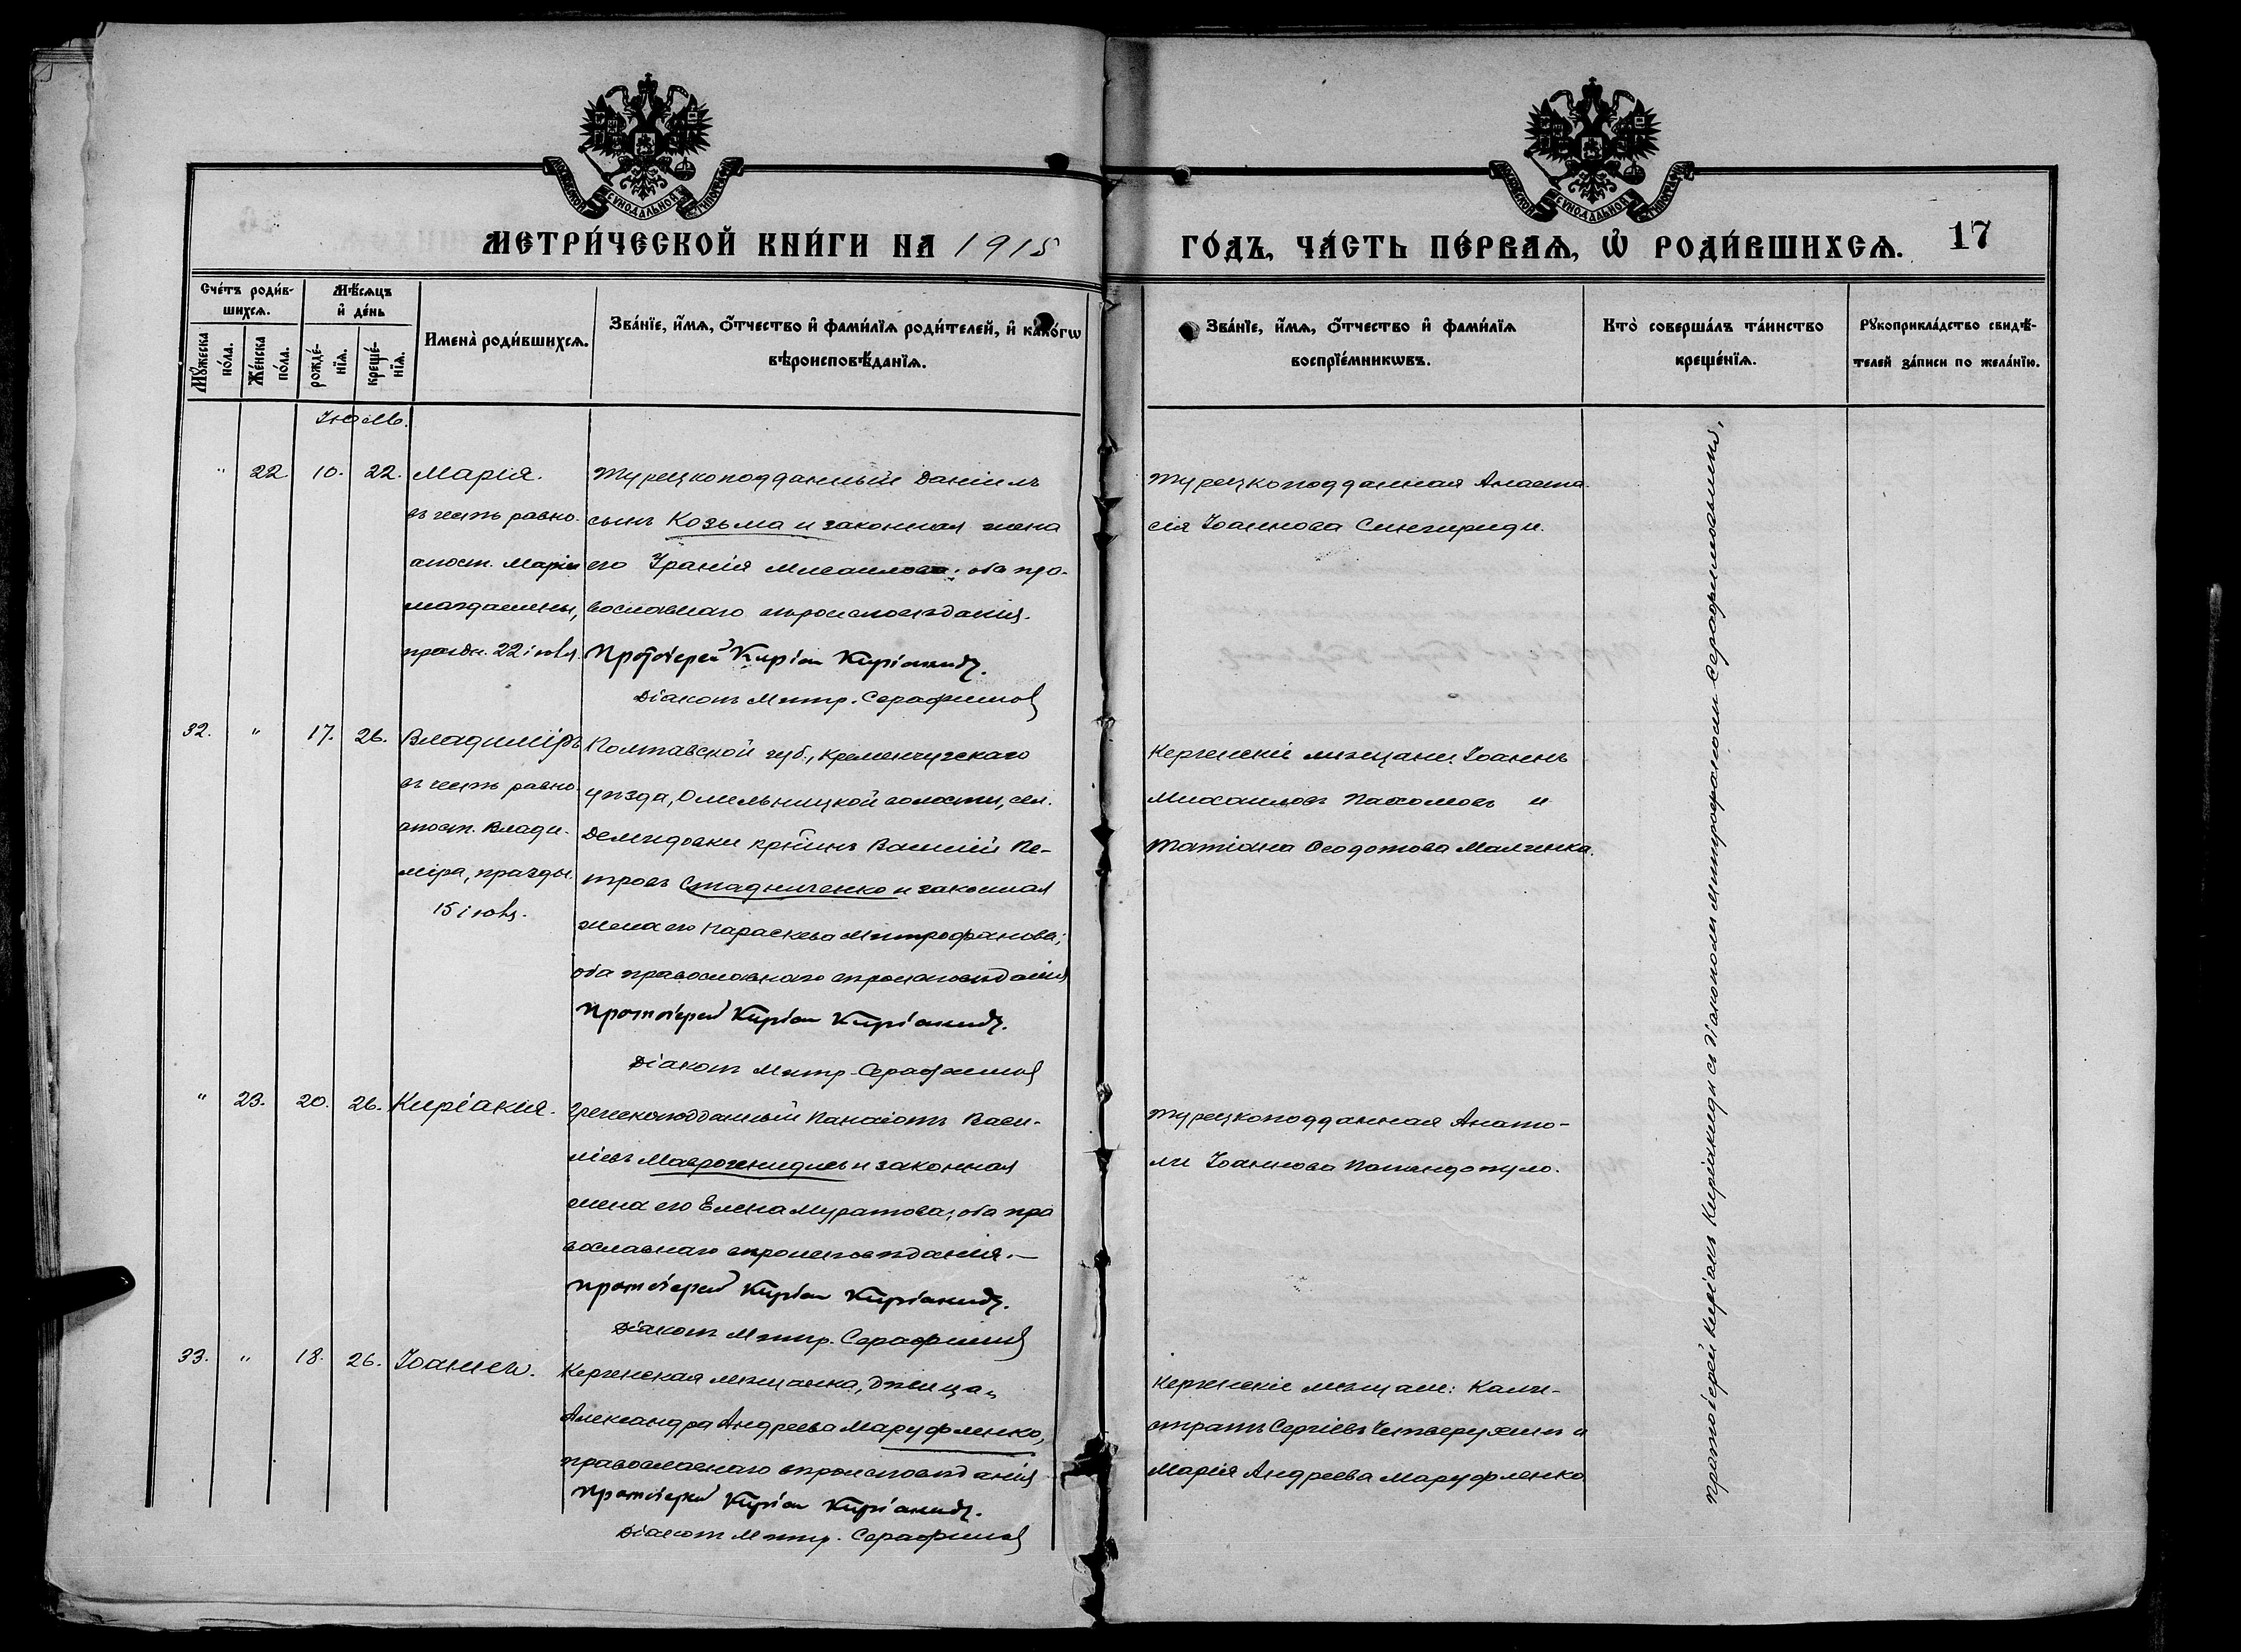 МОСКОВСКОЙ СѴНОДАЛЬНОЙ ТИПОГРАФІИ
МОСКОВСКОЙ СѴНОДАЛЬНОЙ ТИПОГРАФІИ
МЕТРИ́ЧЕСКОЙ КНИ́ГИ НА 1915
ГО́ДЪ, ЧА́СТЬ ПЕ́РВАѦ, Ѡ҆ РОДИ́ВШИХСѦ. 17
Сче́тъ роди́в-
шихсѧ.
Мꙋ́жеска по́ла.
Же́нска по́ла.
Мѣ́сѧцъ
и҆ де́нь
рожде́-
нїѧ.
креще́-
нїѧ.
Имена̀ роди́вшихсѧ.
Зва́нїе, и҆́мѧ, ѻ҆́тчество и҆ фами́лїѧ роди́телей, и҆ како́гѡ
вѣроисповѣ́данїѧ.
Зва́нїе, и҆́мѧ, ѻ҆́тчество и҆ фами́лїѧ
воспрїе́мникѡвъ.
Кто̀ соверша́лъ та́инство
креще́нїѧ.
Рꙋкоприкла́дство свидѣ́-
телей за́писи по жела́нїю.
Іюль.
" 22 10. 22. Марія.
въ честь равно-
апост. Маріи
магдалины,
праздн. 22 іюля.
Турецкоподданный Даніилъ
сынъ Козьма и законная жена
его Уранія Мисаилова; оба пра-
вославнаго вѣроисповѣданія.
Протоіерей Киріак Киріакиди.
Діаконъ Митр. Серафимов
Турецкоподданная Анаста-
сія Іоаннова Синигириди.
32. " 17. 26. Владиміръ
въ честь равно-
апост. Влади-
міра, праздн.
15 іюля.
Полтавской губ., Кременчугскаго
уѣзда, Омельницкой волости, сел.
Демидовки кр̃нинъ Василій Пе-
тровъ Стадниченко и законная
жена его Параскева Митрофанова;
оба православнаго вѣроисповѣданія
Протоіерей Киріак Киріакиди.
Діаконъ Митр. Серафимов
Керченскіе мѣщане: Іоаннъ
Михаиловъ Пахомовъ и
Татіана Ѳеодотова Малченко.
" 23. 20. 26. Киріакія.
Греческоподданный Панаіотъ Васи-
ліевъ Маврогенидисъ и законная
жена его Елена Муратова; оба пра
вославнаго вѣроисповѣданія.—
Протоіерей Киріак Киріакиди.
Діаконъ Митр. Серафимов
Турецкоподданная Анато-
ли Іоаннова Папандопуло.
33. " 18. 26. Іоаннъ.
Керченская мѣщанка, дѣвица
Александра Андреева Маруфленко,
православнаго вѣроисповѣданія
Протоіерей Киріак Киріакиди.
Діаконъ Митр. Серафимов
Керченскіе мѣщане: Кали-
стратъ Сергіевъ Четверухинъ и
Марія Андреева Маруфленко
Протоіерей Киріакъ Киріакиди съ діакономъ Митрофаномъ Серафимовымъ.